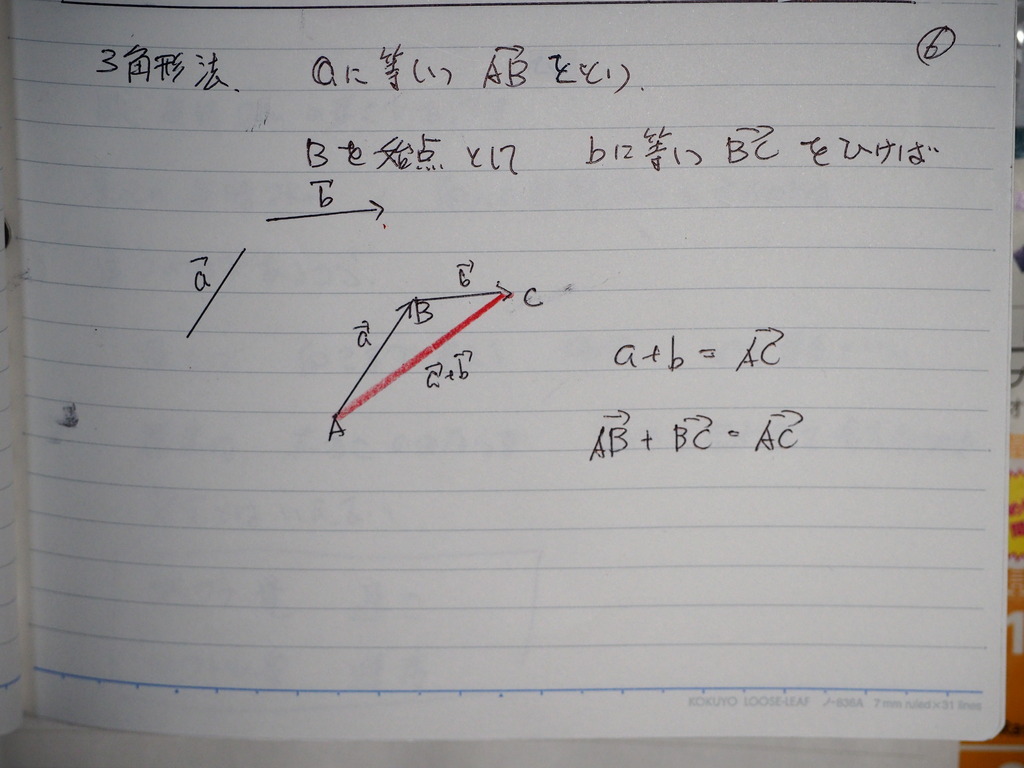 ⑥
3角形法. aに等しい AB→ をとり.
Bを始点として bに等しい BC→ をひけば
b→
a→
b→
B C
a→
a→+b→
A
a+b = AC→
AB→ + BC→ = AC→
KOKUYO LOOSE-LEAF ノ-836A 7 mm ruled×31 lines